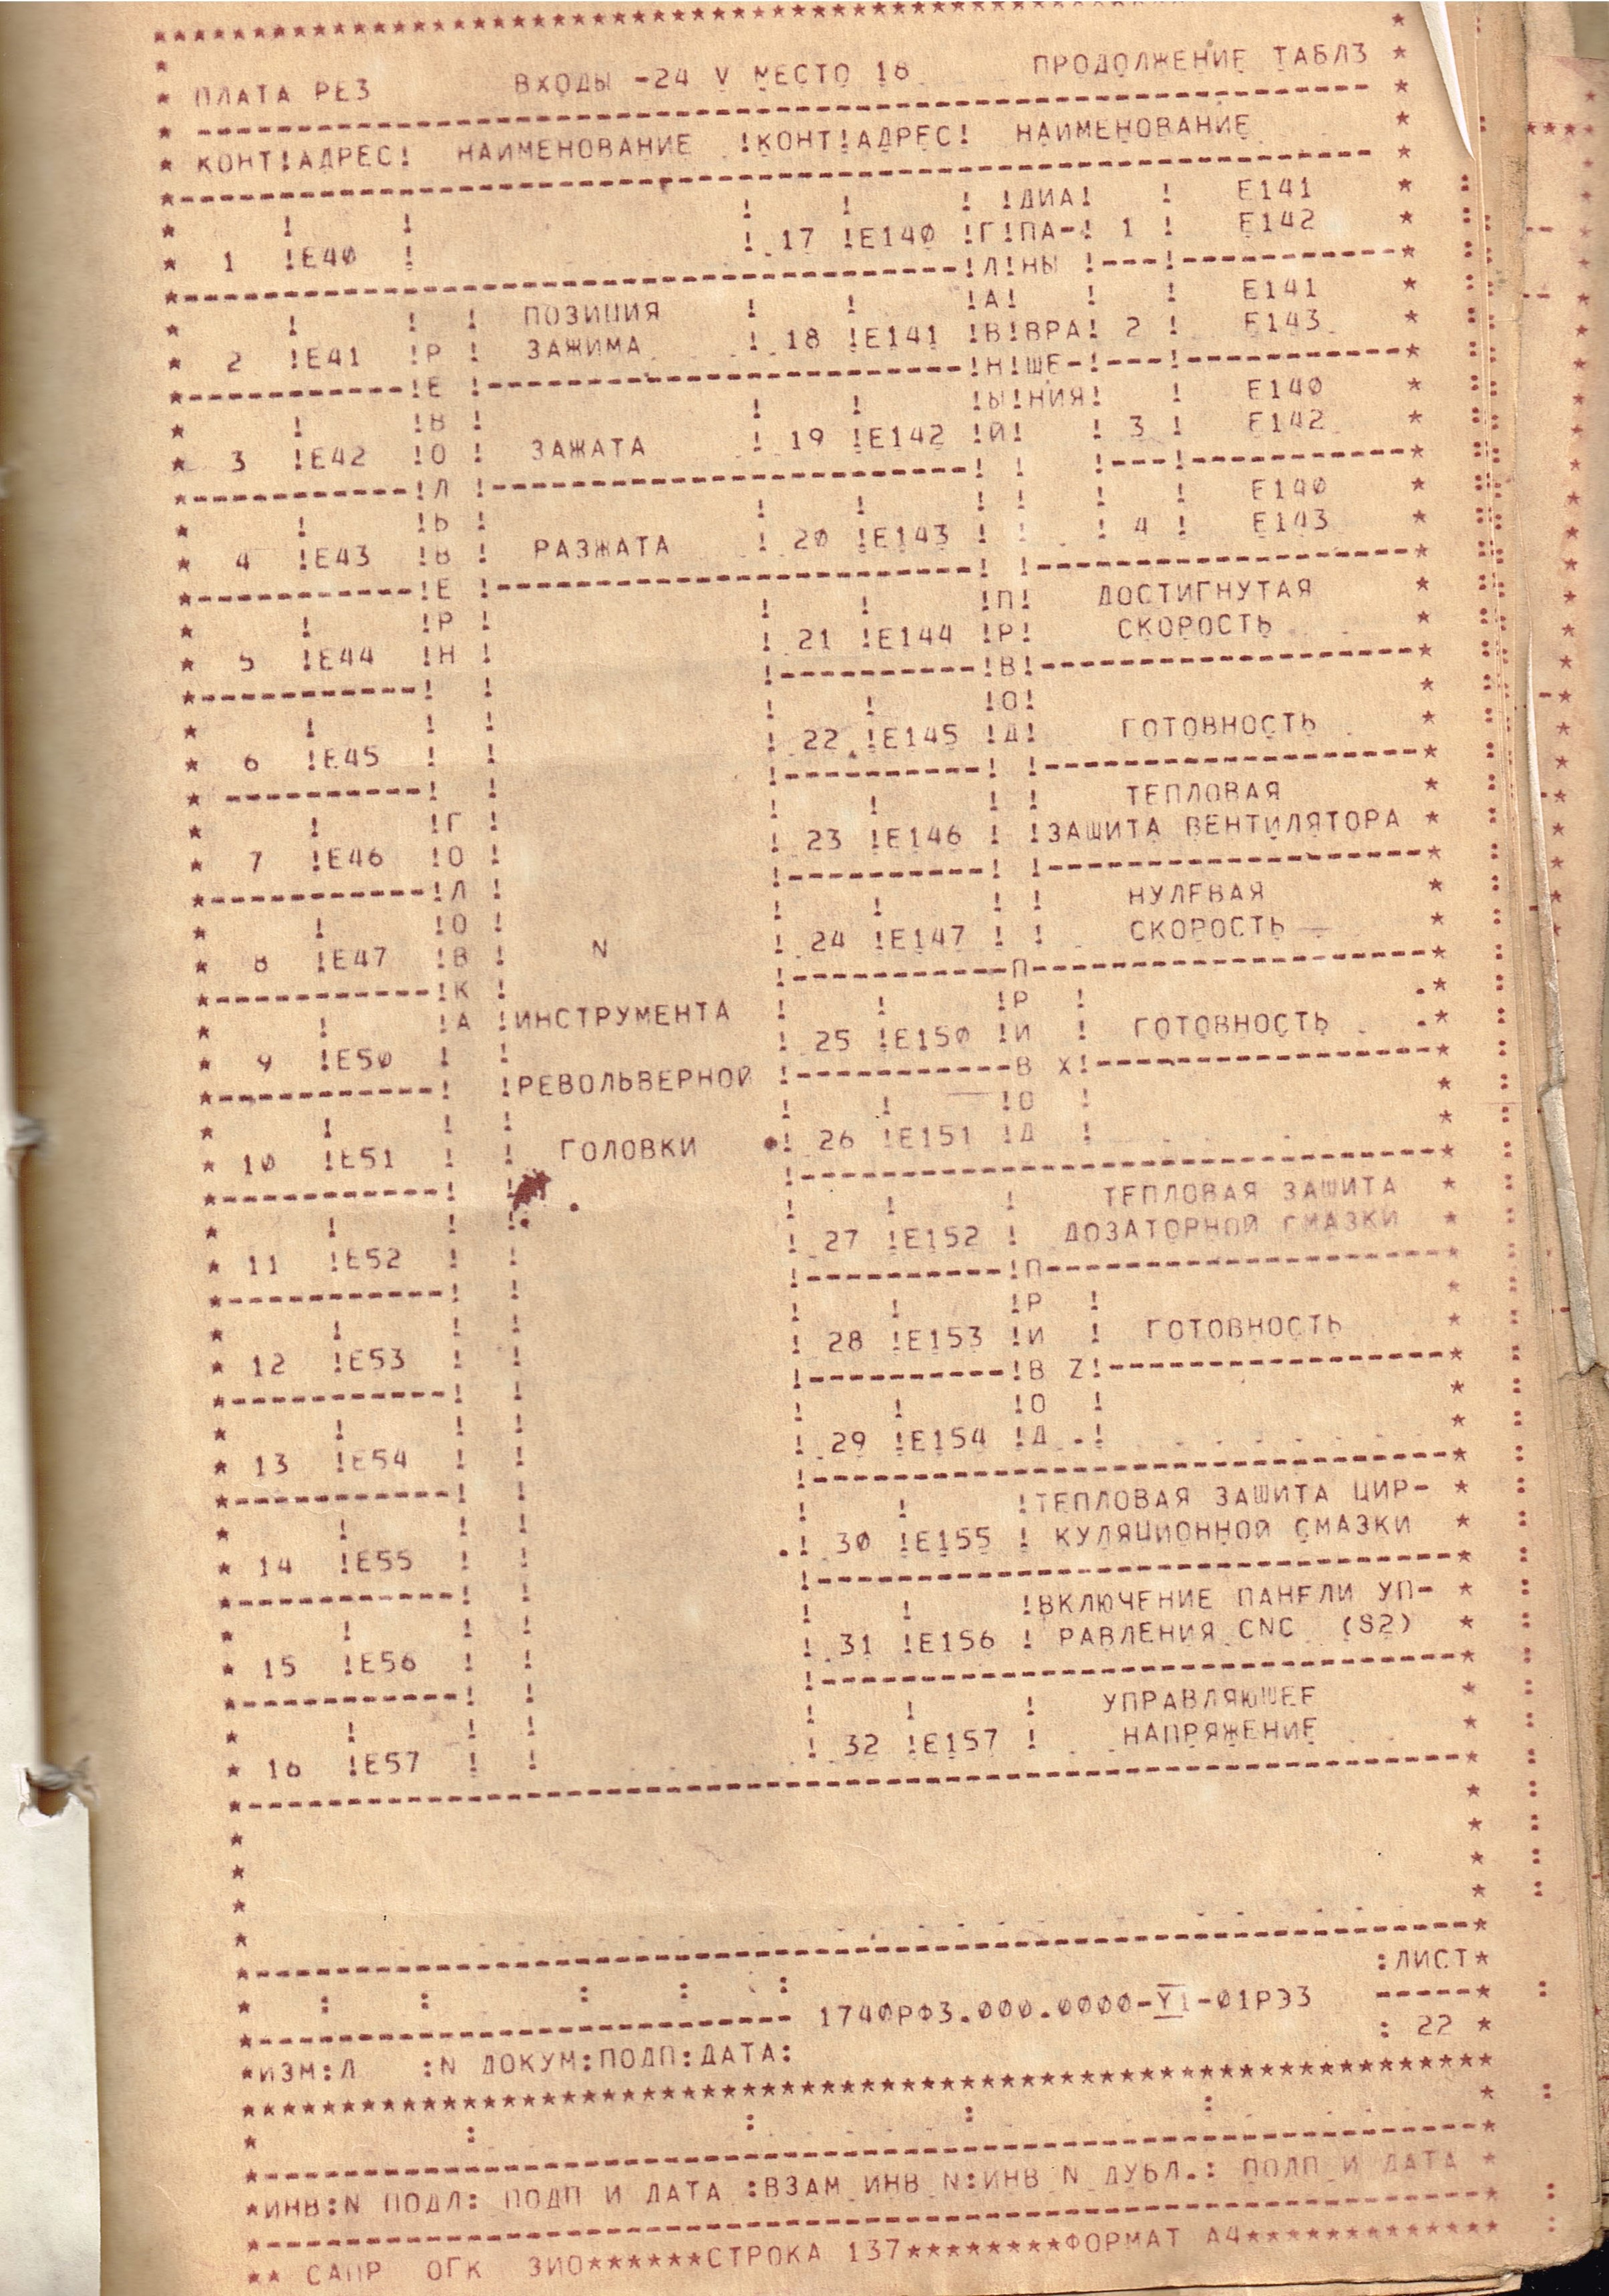 ПЛАТА РЕЗ ВХОДЫ -24 V МЕСТО 18 ПРОДОЛЖЕНИЕ ТАБЛ3
КОНТ!АДРЕС! НАИМЕНОВАНИЕ !КОНТ!АДРЕС! НАИМЕНОВАНИЕ
! ! ! ! ! !ДИА! ! E141
1 !E40 ! ! 17 !E140 !Г!ПА-! 1 ! E142
!Л!НЫ !---!
! ! ! ПОЗИЦИЯ ! ! !А! ! ! E141
2 !E41 !Р ! ЗАЖИМА ! 18 !E141 !В!ВРА! 2 ! E143
!Е ! !Н!ШЕ-!---!
! !В ! ! ! !Ы!НИЯ! ! E140
3 !E42 !О ! ЗАЖАТА ! 19 !E142 !Й! ! 3 ! E142
!Л ! ! ! !---!
! !Ь ! ! ! ! ! ! ! E140
4 !E43 !В ! РАЗЖАТА ! 20 !E143 ! ! ! 4 ! E143
!Е ! ! !
! !Р ! ! ! !П! ДОСТИГНУТАЯ
5 !E44 !Н ! ! 21 !E144 !Р! СКОРОСТЬ
! ! !В!
! ! ! ! ! !О!
6 !E45 ! ! ! 22 !E145 !Д! ГОТОВНОСТЬ
! ! ! !
! !Г ! ! ! ! ! ТЕПЛОВАЯ
7 !E46 !О ! ! 23 !E146 ! !ЗАШИТА ВЕНТИЛЯТОРА
!Л ! ! !
! !О ! ! ! ! ! НУЛЕВАЯ
8 !E47 !В ! N ! 24 !E147 ! ! СКОРОСТЬ
!К ! П
! !А !ИНСТРУМЕНТА ! ! !Р !
9 !E50 ! ! ! 25 !E150 !И ! ГОТОВНОСТЬ
! !РЕВОЛЬВЕРНОЙ ! В X!
! ! ! ! ! !О !
10 !E51 ! ! ГОЛОВКИ ! 26 !E151 !Д !
! ! !
! ! ! ! ! ! ТЕПЛОВАЯ ЗАШИТА
11 !E52 ! ! ! 27 !E152 ! ДОЗАТОРНОЙ СМАЗКИ
! ! ! !П
! ! ! ! ! !Р !
12 !E53 ! ! ! 28 !E153 !И ! ГОТОВНОСТЬ
! ! ! !В Z!
! ! ! ! ! !О !
13 !E54 ! ! ! 29 !E154 !Д !
! ! !
! ! ! ! ! !ТЕПЛОВАЯ ЗАШИТА ЦИР-
14 !E55 ! ! ! 30 !E155 ! КУЛЯЦИОННОЙ СМАЗКИ
! ! !
! ! ! ! ! !ВКЛЮЧЕНИЕ ПАНЕЛИ УП-
15 !E56 ! ! ! 31 !E156 ! РАВЛЕНИЯ CNC (S2)
! ! !
! ! ! ! ! ! УПРАВЛЯЮШЕЕ
16 !E57 ! ! ! 32 !E157 ! НАПРЯЖЕНИЕ
:ЛИСТ
1740РФ3.000.0000-Y1-01РЭ3
: 22
ИЗМ:Л :N ДОКУМ:ПОДП:ДАТА:
ИНВ:N ПОДЛ: ПОДП И ДАТА :ВЗАМ ИНВ N:ИНВ N ДУБЛ.: ПОДП И ДАТА
** САПР ОГК ЗИО******СТРОКА 137********ФОРМАТ А4*************